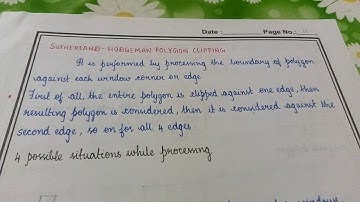 Date :
Page No.:
SUTHERLAND-HODGEMAN POLYGON CLIPPING
It is performed by processing the boundary of polygon
against each window corner or edge
First of all, the entire polygon is clipped against one edge, then
resulting polygon is considered, then it is considered against the
second edge, so on for all 4 edges.
4 possible situations while processing